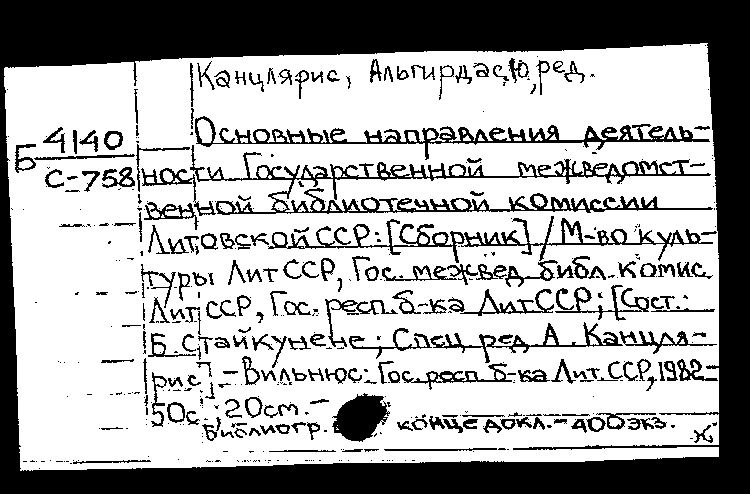 Канцлярис, Альгирдас, Ю, ред.
Б 4140
С-758
Основные направления деятель-
ности Государственной межведомст-
венной библиотечной комиссии
Литовской ССР: [Сборник] / М-во куль-
туры Лит ССР, Гос. межвед. библ. комис.
Лит ССР, Гос. респ. б-ка Лит ССР; [Сост.:
Б. Стайкунене; Спец ред А. Канцля-
рис]. - Вильнюс: Гос. респ. б-ка Лит. ССР, 1982-
50с.; 20см. -
Библиогр. конце докл. - 400 экз.